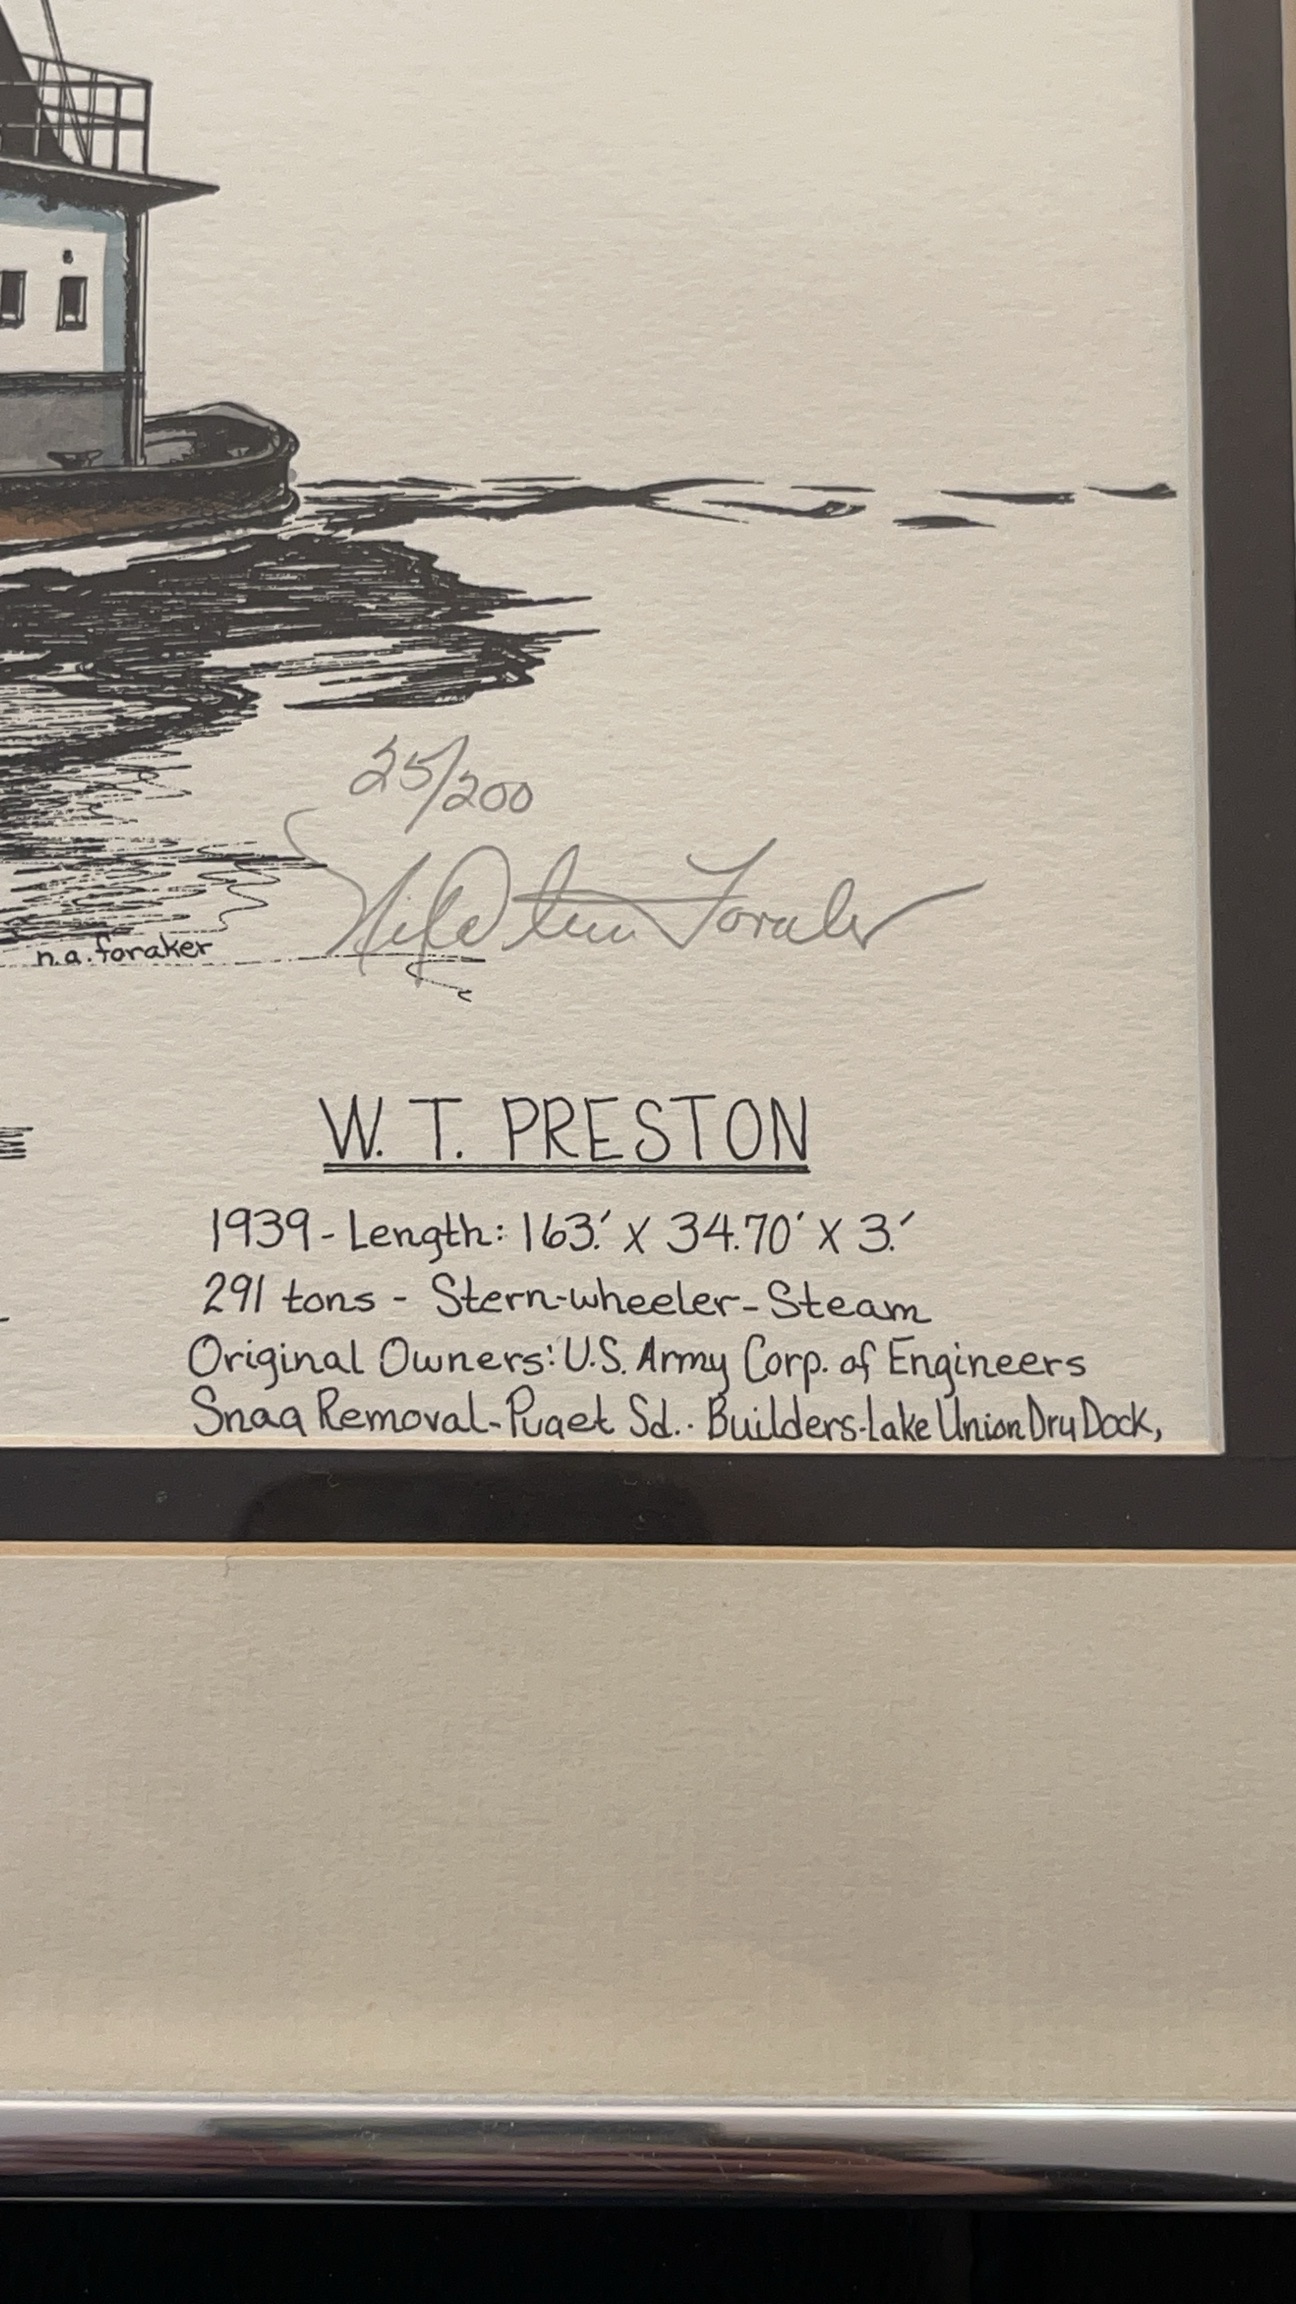 25/200
Foraker
n.a. foraker
W. T. PRESTON
1939 - Length: 163.' X 34.70' X 3.'
291 tons - Stern-wheeler - Steam
Original Owners: U.S. Army Corp. of Engineers
Snag Removal - Puget Sd. - Builders - Lake Union Dry Dock,